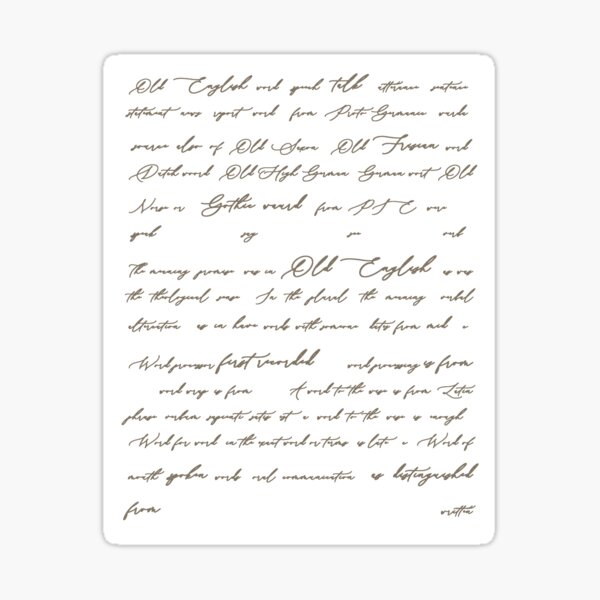 Old English word speech talk utterance sentence
statement news report word from Proto-Germanic wurda
source also of Old Saxon Old Frisian word
Dutch woord Old High German German wort Old
Norse or Gothic waurd from PIE were
speak say see verb
The meaning promise was in Old English as was
the theological sense In the plural the meaning verbal
altercation as in have words with someone dates from mid c
Word processor first recorded word processing is from
word wrap is from A word to the wise is from Latin
phrase verbum sapienti satis est a word to the wise is enough
Word for word in the exact word or terms is late c Word of
mouth spoken words oral communication as distinguished
from written